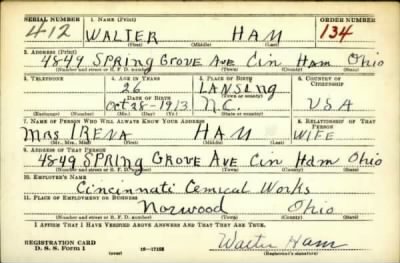 SERIAL NUMBER 1. NAME (Print) ORDER NUMBER
412 WALTER HAM 134
(First) (Middle) (Last)
2. ADDRESS (Print)
4849 SPRING GROVE AVE CIN HAM OHIO
(Number and street or R. F. D. number) (Town) (County) (State)
3. TELEPHONE 4. AGE IN YEARS 5. PLACE OF BIRTH 6. COUNTRY OF CITIZENSHIP
26 LANSING
DATE OF BIRTH (Town or county)
Oct 28-1913 N.C. USA
(Exchange) (Number) (Mo.) (Day) (Yr.) (State or country)
7. NAME OF PERSON WHO WILL ALWAYS KNOW YOUR ADDRESS 8. RELATIONSHIP OF THAT PERSON
MRS IRENA HAM WIFE
(Mr., Mrs., Miss) (First) (Middle) (Last)
9. ADDRESS OF THAT PERSON
4849 SPRING GROVE AVE CIN HAM OHIO
(Number and street or R. F. D. number) (Town) (County) (State)
10. EMPLOYER'S NAME
Cincinnati Cemical Works
11. PLACE OF EMPLOYMENT OR BUSINESS
Norwood Ohio
(Number and street or R. F. D. number) (Town) (County) (State)
I AFFIRM THAT I HAVE VERIFIED ABOVE ANSWERS AND THAT THEY ARE TRUE.
REGISTRATION CARD
D. S. S. Form 1 (over) Walter Ham
(Registrant's signature)